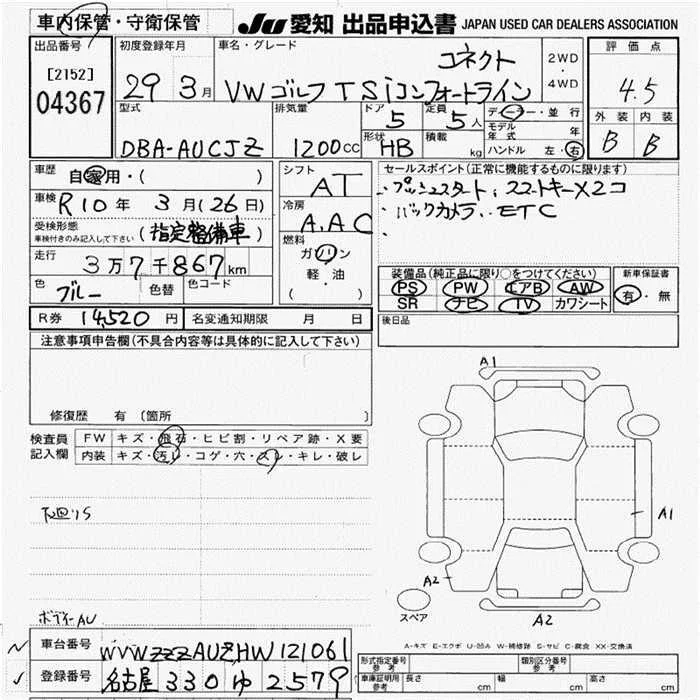 車内保管・守衛保管 JU 愛知 出品申込書 JAPAN USED CAR DEALERS ASSOCIATION
出品番号 初度登録年月 車名・グレード 評価点
[2152] コネクト 2WD
04367 29 3月 VWゴルフTSIコンフォートライン ・ 4WD 4.5
型式 排気量 ドア 定員 ディーラー・並行 外装 内装
5 5人 モデル年式 年 B B
DBA-AUCJZ 1200cc 形状 積載 ハンドル 左・右
HB kg
車歴 自家用・( ) シフト AT セールスポイント(正常に機能するものに限ります)
車検 R10年 3月(26日) 冷房 A.AC ・プッシュスタート、スマートキーX2コ
受検形態 (指定整備車) ・バックカメラ、ETC
車検付きのみ記入して下さい 燃料 ・
走行 3万7千867km ガソリン
軽・油
( )
装備品(純正品に限り○をつけてください) 新車保証書
色 ブルー 色替 色コード PS PW エアB AW 有・無
SR ナビ TV カワシート
R券 14,520円 名変通知期限 月 日 後日品
注意事項申告欄(不具合内容等は具体的に記入して下さい)
修復歴 有 (箇所 )
検査員 FW キズ・飛石・ヒビ割・リペア跡・X要
記入欄 内装 キズ・汚レ・コゲ・穴・スレ・キレ・破レ
A1
下廻りS
A1
A2
スペア
A2
ボディーAU
A-キズ E-エクボ U-凹み W-補修跡 S-サビ C-腐食 XX-交換済
車台番号 WVWZZZAUZHW121061
形式指定番号 参考 類別区分番号 参考
登録番号 名古屋 330 ゆ 2579
車庫証明用 参考 長さ cm 幅 cm 高さ cm